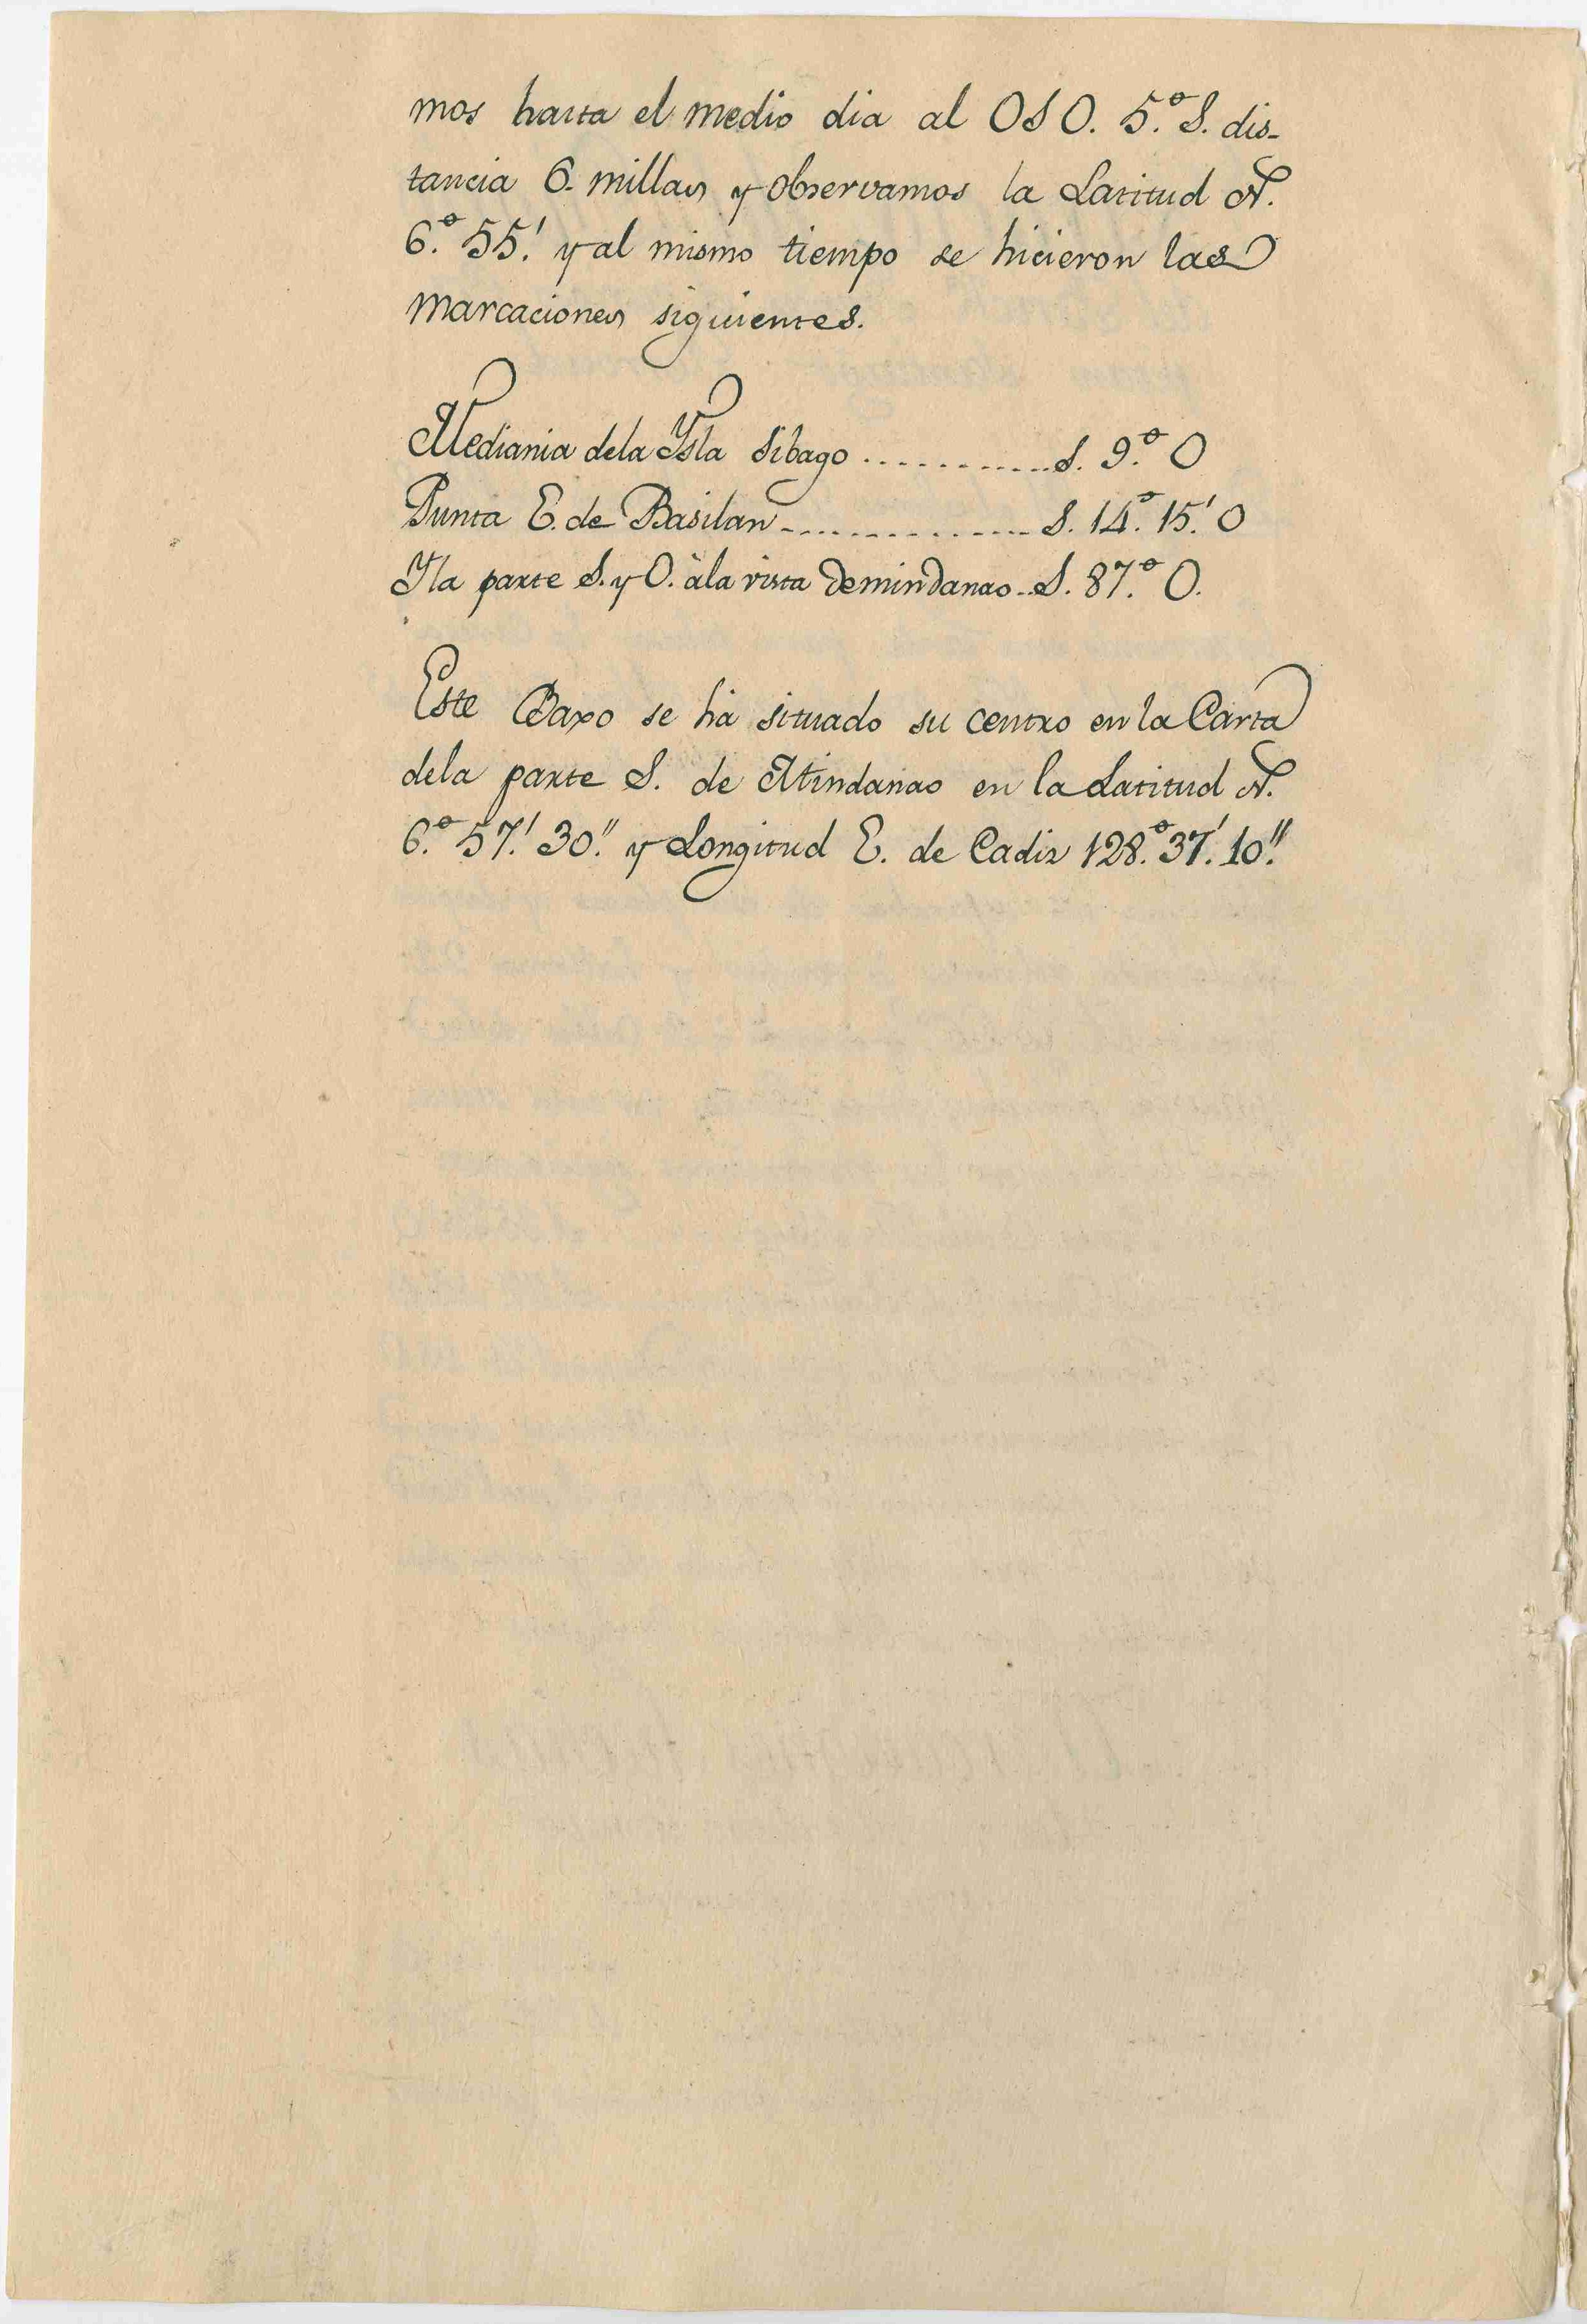 mos hasta el medio dia al OSO. 5.º S. dis-
tancia 6. millas y observamos la Latitud N.
6.º 55.' y al mismo tiempo se hicieron las
marcaciones siguientes.
Mediania dela Ysla Sibago ............ S. 9.º O
Punta E. de Basilan ............... S. 14.º 15.' O
Yla parte S. y O. àla vista demindanao .. S. 87.º O.
Este Baxo se ha situado su centro en la Carta
dela parte S. de Mindanao en la Latitud N.
6.º 57.' 30." y Longitud E. de Cadiz 128.º 37.' 10."